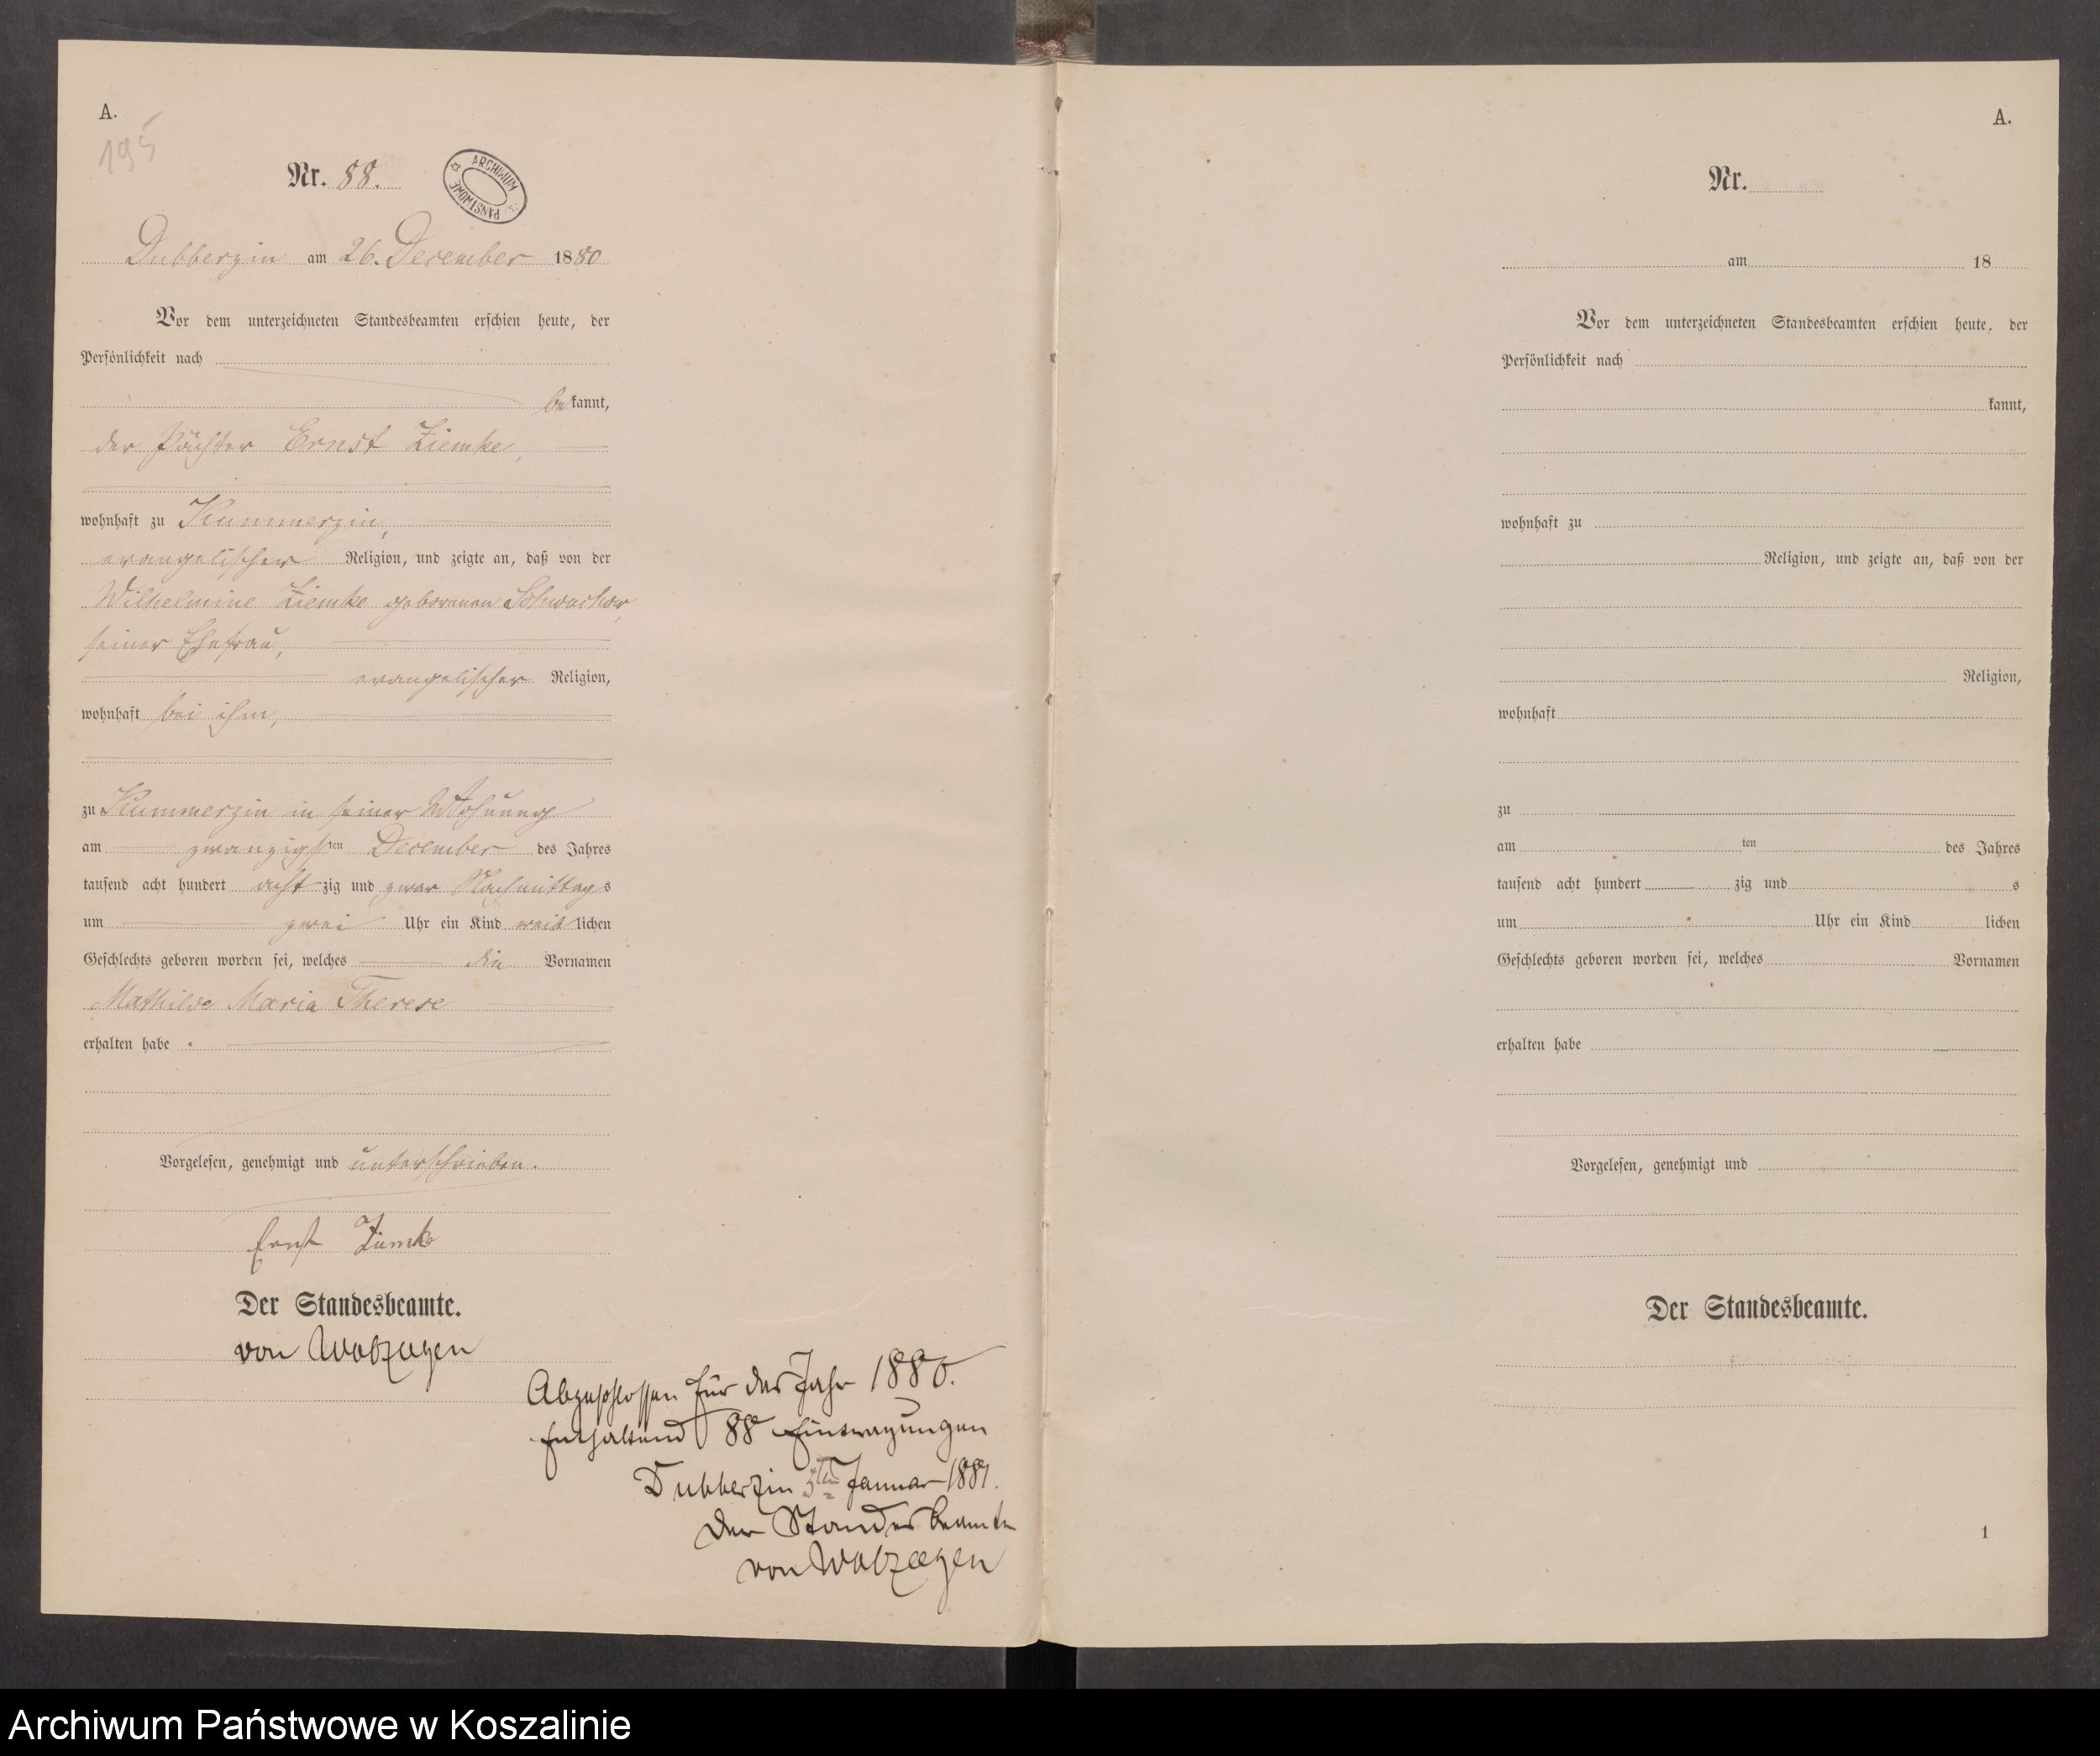 A.
195
Nr. 88.
ARCHIWUM PAŃSTWOWE
Dubberzin am 26. December 1880
Vor dem unterzeichneten Standesbeamten erschien heute, der
Persönlichkeit nach
bekannt,
der Pächter Ernst Ziemke,
wohnhaft zu Kummerzin,
evangelischer Religion, und zeigte an, daß von der
Wilhelmine Ziemke geborenen
seiner Ehefrau,
evangelischer Religion,
wohnhaft bei ihm,
zu Kummerzin in seiner Wohnung
am zwanzigsten December des Jahres
tausend acht hundert achtzig und zwar Nachmittags
um zwei Uhr ein Kind weiblichen
Geschlechts geboren worden sei, welches die Vornamen
Mathilde Maria Therese
erhalten habe.
Vorgelesen, genehmigt und unterschrieben.
Ernst Ziemke
Der Standesbeamte.
von
Abgeschlossen für das Jahr 1880.
Enthaltend 88 Eintragungen
Dubberzin 5ten Januar 1881.
Der Standesbeamte
von
A.
Nr.
am 18
Vor dem unterzeichneten Standesbeamten erschien heute, der
Persönlichkeit nach
kannt,
wohnhaft zu
Religion, und zeigte an, daß von der
Religion,
wohnhaft
zu
am ten des Jahres
tausend acht hundert zig und s
um Uhr ein Kind lichen
Geschlechts geboren worden sei, welches Vornamen
erhalten habe
Vorgelesen, genehmigt und
Der Standesbeamte.
1
Archiwum Państwowe w Koszalinie